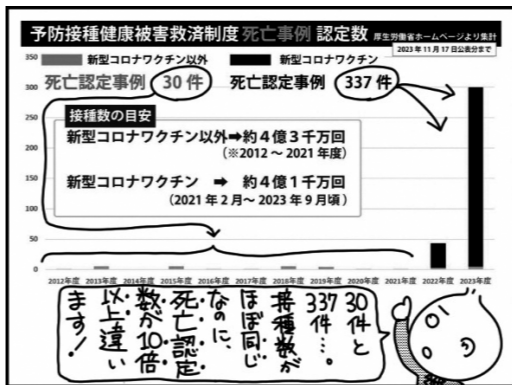 予防接種健康被害救済制度 死亡事例 認定数 厚生労働省ホームページより集計
2023年11月17日公表分まで
350
新型コロナワクチン以外
新型コロナワクチン
300
死亡認定事例 30件
死亡認定事例 337件
250
接種数の目安
新型コロナワクチン以外➡約4億3千万回
(※2012～2021年度)
200
150
新型コロナワクチン ➡ 約4億1千万回
(2021年2月～2023年9月頃)
100
50
0
2012年度 2013年度 2014年度 2015年度 2016年度 2017年度 2018年度 2019年度 2020年度 2021年度 2022年度 2023年度
30件と
337件…。
接種数が
ほぼ同じ
なのに、
死亡認定
数が10倍
以上違い
ます！